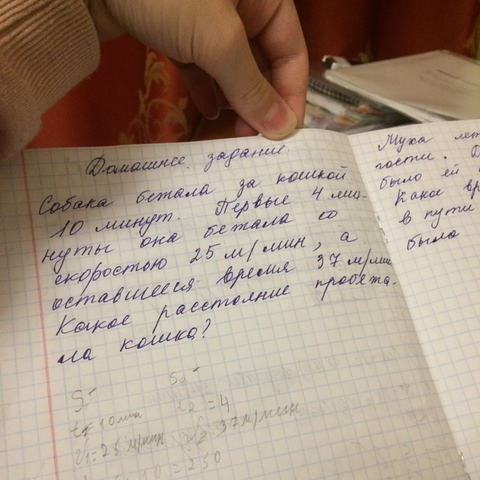 Домашнее задание
Собака бетала за кошкой
10 минут. Первые 4 ми-
нуты она бетала со
скоростью 25 м/мин, а
оставшееся время 37 м/мин
Какое расстояние пробежа-
ла кошка?
S₁ S₂
t₁=10мин t₂=4
V₁=25 м/мин 37м/мин
10=250
Муха
гости.
было ей
Какое
в пути
было